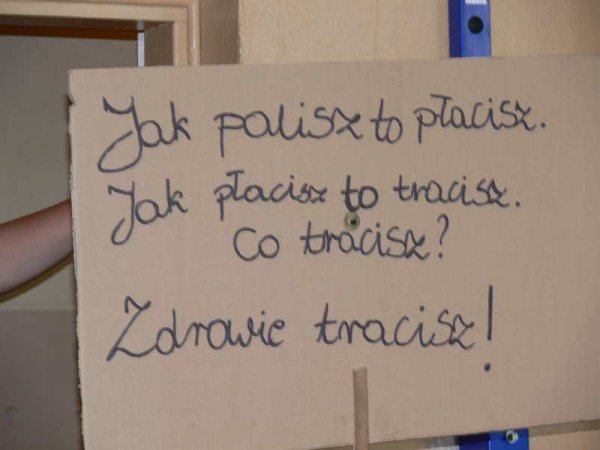 Jak palisz to płacisz.
Jak płacisz to tracisz.
Co tracisz?
Zdrowie tracisz!